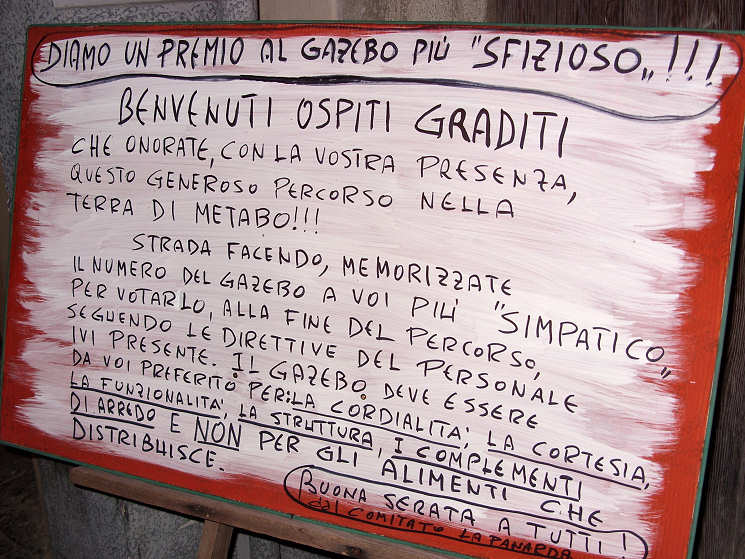 DIAMO UN PREMIO AL GAZEBO PIÙ "SFIZIOSO„!!!
BENVENUTI OSPITI GRADITI
CHE ONORATE, CON LA VOSTRA PRESENZA,
QUESTO GENEROSO PERCORSO NELLA
TERRA DI METABO!!!
STRADA FACENDO, MEMORIZZATE
IL NUMERO DEL GAZEBO A VOI PIÙ "SIMPATICO„
PER VOTARLO, ALLA FINE DEL PERCORSO,
SEGUENDO LE DIRETTIVE DEL PERSONALE
IVI PRESENTE. IL GAZEBO DEVE ESSERE
DA VOI PREFERITO PER: LA CORDIALITA', LA CORTESIA,
LA FUNZIONALITA', LA STRUTTURA, I COMPLEMENTI
DI ARREDO E NON PER GLI ALIMENTI CHE
DISTRIBUISCE.
BUONA SERATA A TUTTI!
dal COMITATO LA PANARDA